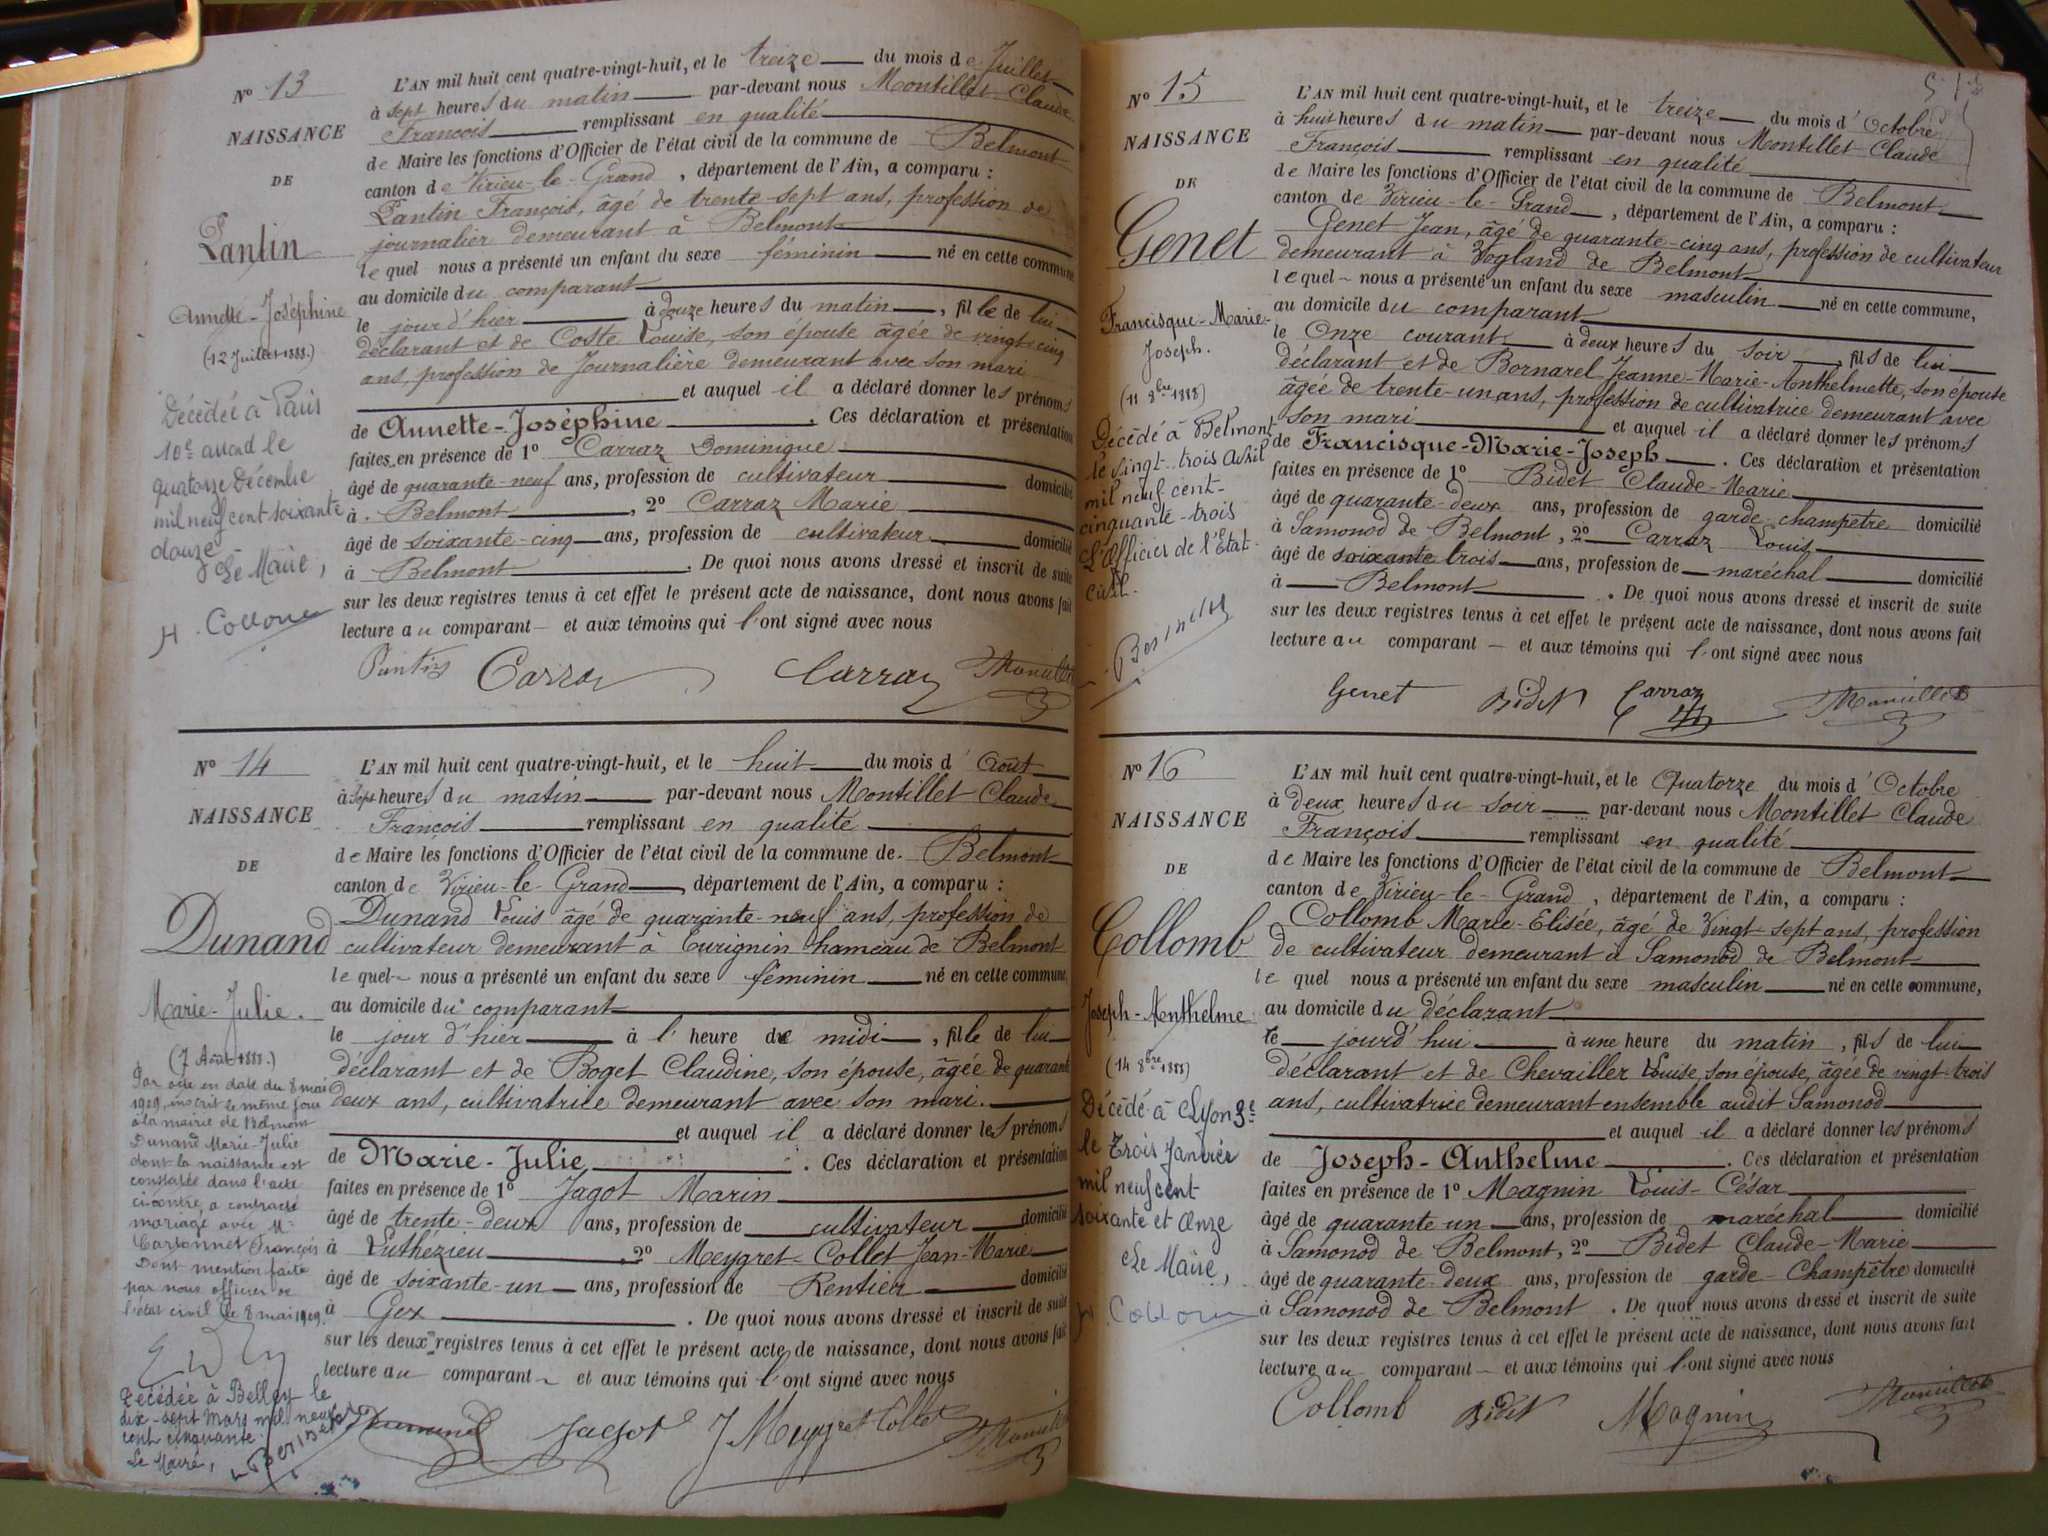 N° 13
NAISSANCE
DE
Pantin
Annette-Joséphine
(12 Juillet 1888.)
Décédée à Paris
10e arrond le
quatorze Décembre
mil neuf cent soixante
douze
Le Maire,
L'AN mil huit cent quatre-vingt-huit, et le treize du mois de Juillet
à sept heures du matin par-devant nous Montillet Claude
François remplissant en qualité
de Maire les fonctions d'Officier de l'état civil de la commune de Belmont
canton de Virieu-le-Grand, département de l'Ain, a comparu :
Pantin François, âgé de trente-sept ans, profession de
journalier demeurant à Belmont
lequel nous a présenté un enfant du sexe féminin né en cette commune
au domicile du comparant
le jour d'hier à douze heures du matin, fille de lui
déclarant et de Coste Louise, son épouse âgée de vingt-cinq
ans, profession de Journalière demeurant avec son mari
et auquel il a déclaré donner les prénoms
de Annette-Joséphine. Ces déclaration et présentation
faites en présence de 1° Carraz Dominique
âgé de quarante-neuf ans, profession de cultivateur domicilié
à Belmont, 2° Carraz Marie
âgé de soixante-cinq ans, profession de cultivateur domicilié
à Belmont. De quoi nous avons dressé et inscrit de suite
sur les deux registres tenus à cet effet le présent acte de naissance, dont nous avons fait
lecture au comparant et aux témoins qui l'ont signé avec nous
Pantin Carraz Carraz Montillet
N° 14
NAISSANCE
DE
Dunand
Marie-Julie.
(7 Août 1888.)
Par acte en date du 8 mai
1909, inscrit le même jour
à la mairie de Belmont
Dunand Marie-Julie
dont la naissance est
constatée dans l'acte
ci-contre a contracté
mariage avec Mr
François
Dont mention faite
par nous officier de
l'état civil le 8 mai 1909.
Décédée à Belley le
dix-sept mars mil neuf
cent cinquante.
Le Maire,
L'AN mil huit cent quatre-vingt-huit, et le huit du mois d'Août
à sept heures du matin par-devant nous Montillet Claude
François remplissant en qualité
de Maire les fonctions d'Officier de l'état civil de la commune de Belmont
canton de Virieu-le-Grand, département de l'Ain, a comparu :
Dunand Louis âgé de quarante-neuf ans, profession de
cultivateur demeurant à Curignin hameau de Belmont
lequel nous a présenté un enfant du sexe féminin né en cette commune,
au domicile du comparant
le jour d'hier à l'heure de midi, fille de lui
déclarant et de Boget Claudine, son épouse, âgée de quarante
deux ans, cultivatrice demeurant avec son mari.
et auquel il a déclaré donner les prénoms
de Marie-Julie. Ces déclaration et présentation
faites en présence de 1° Jagot Marin
âgé de trente-deux ans, profession de cultivateur domicilié
à Luthézieu 2° Meygret-Collet Jean-Marie
âgé de soixante-un ans, profession de Rentier domicilié
à Gex. De quoi nous avons dressé et inscrit de suite
sur les deux registres tenus à cet effet le présent acte de naissance, dont nous avons fait
lecture au comparant et aux témoins qui l'ont signé avec nous
Dunand Jagot J Meygret Collet Montillet
N° 15
NAISSANCE
DE
Genet
Francisque-Marie-
Joseph.
(11 8bre 1888)
Décédé à Belmont
le vingt-trois avril
mil neuf cent-
cinquante-trois
L'Officier de l'Etat-
civil.
L'AN mil huit cent quatre-vingt-huit, et le treize du mois d'Octobre
à huit heures du matin par-devant nous Montillet Claude
François remplissant en qualité
de Maire les fonctions d'Officier de l'état civil de la commune de Belmont
canton de Virieu-le-Grand, département de l'Ain, a comparu :
Genet Jean, âgé de quarante-cinq ans, profession de cultivateur
demeurant à Vogland de Belmont
lequel nous a présenté un enfant du sexe masculin né en cette commune,
au domicile du comparant
le Onze courant à deux heures du soir, fils de lui
déclarant et de Bornarel Jeanne-Marie-Anthelmette, son épouse
âgée de trente-un ans, profession de cultivatrice demeurant avec
son mari et auquel il a déclaré donner les prénoms
de Francisque-Marie-Joseph. Ces déclaration et présentation
faites en présence de 1° Bidet Claude-Marie
âgé de quarante-deux ans, profession de garde-champêtre domicilié
à Samonod de Belmont, 2° Carraz Louis
âgé de soixante trois ans, profession de maréchal domicilié
à Belmont. De quoi nous avons dressé et inscrit de suite
sur les deux registres tenus à cet effet le présent acte de naissance, dont nous avons fait
lecture au comparant et aux témoins qui l'ont signé avec nous
Genet Bidet Carraz Montillet
N° 16
NAISSANCE
DE
Collomb
Joseph-Anthelme
(14 8bre 1888)
Décédé à Lyon 3e
le trois Janvier
mil neuf cent
soixante et onze
Le Maire,
L'AN mil huit cent quatre-vingt-huit, et le Quatorze du mois d'Octobre
à deux heures du soir par-devant nous Montillet Claude
François remplissant en qualité
de Maire les fonctions d'Officier de l'état civil de la commune de Belmont
canton de Virieu-le-Grand, département de l'Ain, a comparu :
Collomb Marie-Elisée, âgé de Vingt-sept ans, profession
de cultivateur demeurant à Samonod de Belmont
le quel nous a présenté un enfant du sexe masculin né en cette commune,
au domicile du déclarant
le jourd'hui à une heure du matin, fils de lui
déclarant et de Chevailler Louise, son épouse, âgée de vingt-trois
ans, cultivatrice demeurant ensemble audit Samonod
et auquel il a déclaré donner les prénoms
de Joseph-Anthelme. Ces déclaration et présentation
faites en présence de 1° Magnin Louis-César
âgé de quarante-un ans, profession de maréchal domicilié
à Samonod de Belmont, 2° Bidet Claude-Marie
âgé de quarante-deux ans, profession de garde-Champêtre domicilié
à Samonod de Belmont. De quoi nous avons dressé et inscrit de suite
sur les deux registres tenus à cet effet le présent acte de naissance, dont nous avons fait
lecture au comparant et aux témoins qui l'ont signé avec nous
Collomb Bidet Magnin Montillet